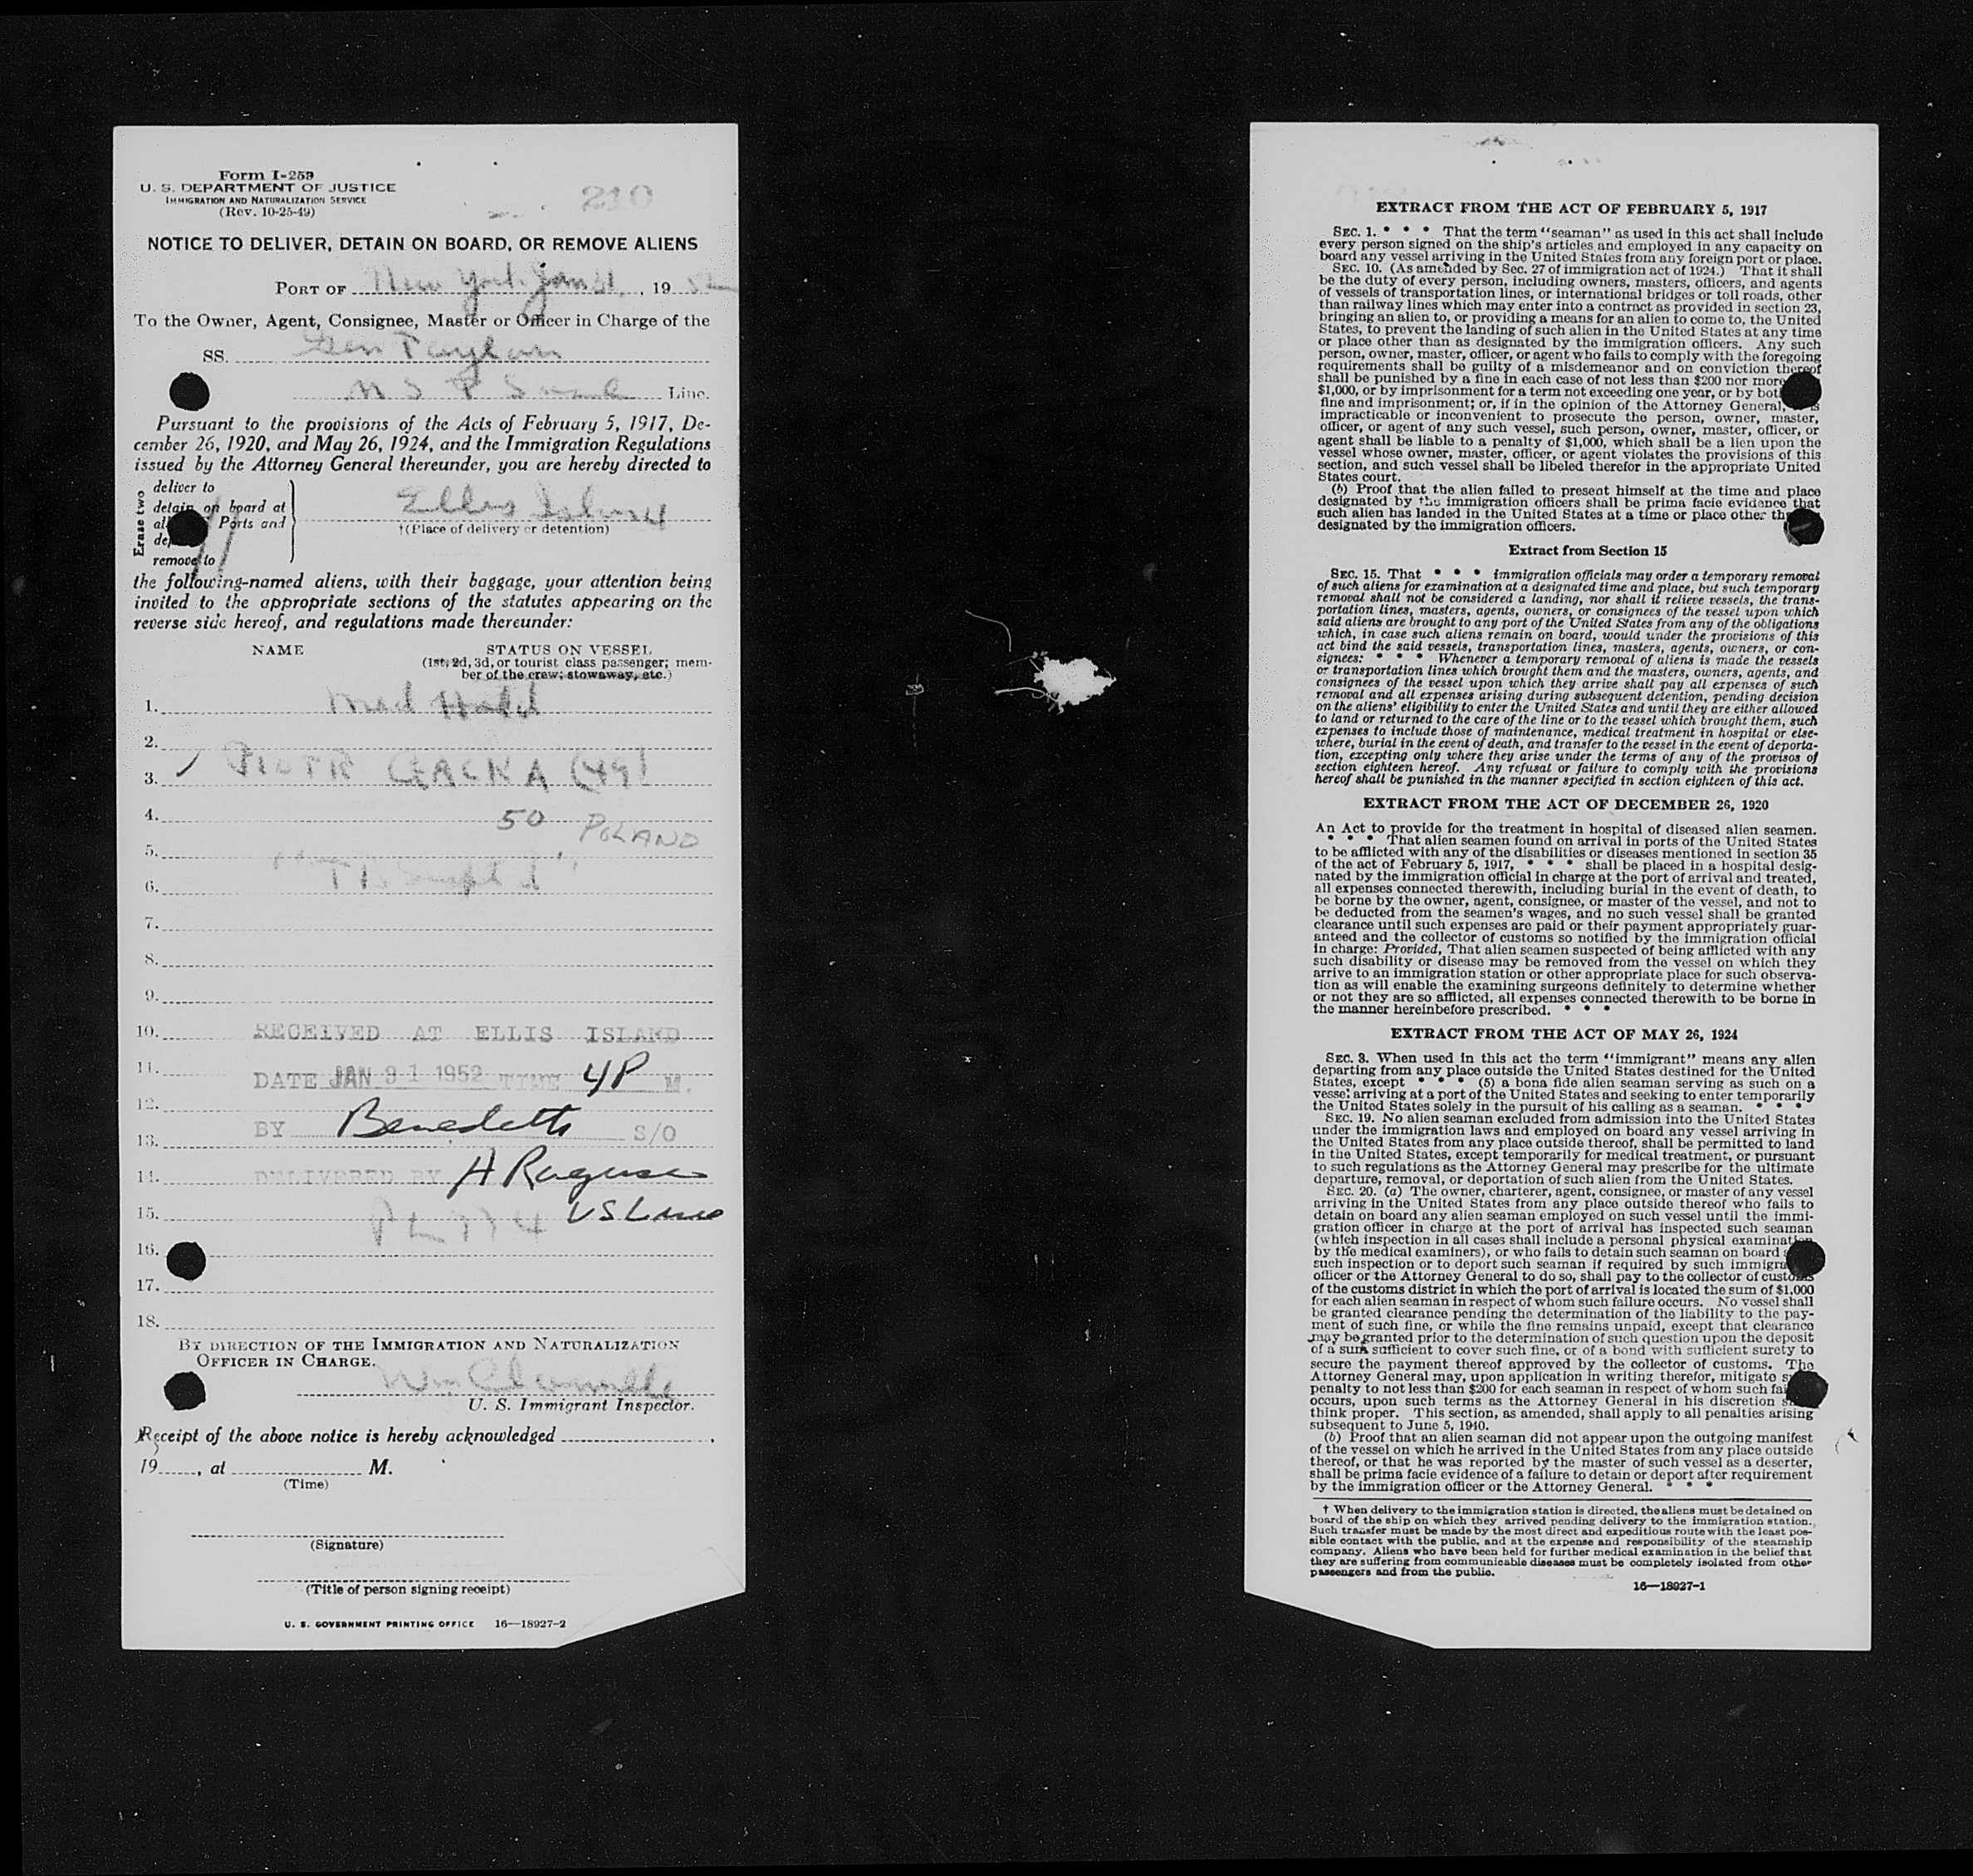 Form I-259
U. S. DEPARTMENT OF JUSTICE
IMMIGRATION AND NATURALIZATION SERVICE
(Rev. 10-25-49)
210
NOTICE TO DELIVER, DETAIN ON BOARD, OR REMOVE ALIENS
PORT OF New York Jan 31, 19 52
To the Owner, Agent, Consignee, Master or Officer in Charge of the
SS. Gen Taylor
Line.
Pursuant to the provisions of the Acts of February 5, 1917, De-
cember 26, 1920, and May 26, 1924, and the Immigration Regulations
issued by the Attorney General thereunder, you are hereby directed to
Erase two
deliver to
detain on board at
Ports and
remove to
Ellis Island
†(Place of delivery or detention)
the following-named aliens, with their baggage, your attention being
invited to the appropriate sections of the statutes appearing on the
reverse side hereof, and regulations made thereunder:
NAME STATUS ON VESSEL
(1st, 2d, 3d, or tourist class passenger; mem-
ber of the crew; stowaway, etc.)
1. Med Hold
2.
3. PIOTR (49)
4. 50 POLAND
5.
6.
7.
8.
9.
10. RECEIVED AT ELLIS ISLAND
11. DATE JAN 31 1952 TIME 4P M.
12.
13. BY Benedetto S/O
14. DELIVERED BY A Ragusa
15. US Lines
16.
17.
18.
BY DIRECTION OF THE IMMIGRATION AND NATURALIZATION
OFFICER IN CHARGE.
U. S. Immigrant Inspector.
Receipt of the above notice is hereby acknowledged ,
19 , at M.
(Time)
(Signature)
(Title of person signing receipt)
U. S. GOVERNMENT PRINTING OFFICE 16—18927-2
EXTRACT FROM THE ACT OF FEBRUARY 5, 1917
SEC. 1. * * * That the term "seaman" as used in this act shall include
every person signed on the ship's articles and employed in any capacity on
board any vessel arriving in the United States from any foreign port or place.
SEC. 10. (As amended by Sec. 27 of immigration act of 1924.) That it shall
be the duty of every person, including owners, masters, officers, and agents
of vessels of transportation lines, or international bridges or toll roads, other
than railway lines which may enter into a contract as provided in section 23,
bringing an alien to, or providing a means for an alien to come to, the United
States, to prevent the landing of such alien in the United States at any time
or place other than as designated by the immigration officers. Any such
person, owner, master, officer, or agent who fails to comply with the foregoing
requirements shall be guilty of a misdemeanor and on conviction thereof
shall be punished by a fine in each case of not less than $200 nor more
$1,000, or by imprisonment for a term not exceeding one year, or by both
fine and imprisonment; or, if in the opinion of the Attorney General,
impracticable or inconvenient to prosecute the person, owner, master,
officer, or agent of any such vessel, such person, owner, master, officer, or
agent shall be liable to a penalty of $1,000, which shall be a lien upon the
vessel whose owner, master, officer, or agent violates the provisions of this
section, and such vessel shall be libeled therefor in the appropriate United
States court.
(b) Proof that the alien failed to present himself at the time and place
designated by the immigration officers shall be prima facie evidence that
such alien has landed in the United States at a time or place other
designated by the immigration officers.
Extract from Section 15
SEC. 15. That * * * immigration officials may order a temporary removal
of such aliens for examination at a designated time and place, but such temporary
removal shall not be considered a landing, nor shall it relieve vessels, the trans-
portation lines, masters, agents, owners, or consignees of the vessel upon which
said aliens are brought to any port of the United States from any of the obligations
which, in case such aliens remain on board, would under the provisions of this
act bind the said vessels, transportation lines, masters, agents, owners, or con-
signees: * * * Whenever a temporary removal of aliens is made the vessels
or transportation lines which brought them and the masters, owners, agents, and
consignees of the vessel upon which they arrive shall pay all expenses of such
removal and all expenses arising during subsequent detention, pending decision
on the aliens' eligibility to enter the United States and until they are either allowed
to land or returned to the care of the line or to the vessel which brought them, such
expenses to include those of maintenance, medical treatment in hospital or else-
where, burial in the event of death, and transfer to the vessel in the event of deporta-
tion, excepting only where they arise under the terms of any of the provisos of
section eighteen hereof. Any refusal or failure to comply with the provisions
hereof shall be punished in the manner specified in section eighteen of this act.
EXTRACT FROM THE ACT OF DECEMBER 26, 1920
An Act to provide for the treatment in hospital of diseased alien seamen.
* * * That alien seamen found on arrival in ports of the United States
to be afflicted with any of the disabilities or diseases mentioned in section 35
of the act of February 5, 1917, * * * shall be placed in a hospital desig-
nated by the immigration official in charge at the port of arrival and treated,
all expenses connected therewith, including burial in the event of death, to
be borne by the owner, agent, consignee, or master of the vessel, and not to
be deducted from the seamen's wages, and no such vessel shall be granted
clearance until such expenses are paid or their payment appropriately guar-
anteed and the collector of customs so notified by the immigration official
in charge: Provided, That alien seamen suspected of being afflicted with any
such disability or disease may be removed from the vessel on which they
arrive to an immigration station or other appropriate place for such observa-
tion as will enable the examining surgeons definitely to determine whether
or not they are so afflicted, all expenses connected therewith to be borne in
the manner hereinbefore prescribed. * * *
EXTRACT FROM THE ACT OF MAY 26, 1924
SEC. 3. When used in this act the term "immigrant" means any alien
departing from any place outside the United States destined for the United
States, except * * * (5) a bona fide alien seaman serving as such on a
vessel arriving at a port of the United States and seeking to enter temporarily
the United States solely in the pursuit of his calling as a seaman. * * *
SEC. 19. No alien seaman excluded from admission into the United States
under the immigration laws and employed on board any vessel arriving in
the United States from any place outside thereof, shall be permitted to land
in the United States, except temporarily for medical treatment, or pursuant
to such regulations as the Attorney General may prescribe for the ultimate
departure, removal, or deportation of such alien from the United States.
SEC. 20. (a) The owner, charterer, agent, consignee, or master of any vessel
arriving in the United States from any place outside thereof who fails to
detain on board any alien seaman employed on such vessel until the immi-
gration officer in charge at the port of arrival has inspected such seaman
(which inspection in all cases shall include a personal physical examination
by the medical examiners), or who fails to detain such seaman on board
such inspection or to deport such seaman if required by such immigra
officer or the Attorney General to do so, shall pay to the collector of customs
of the customs district in which the port of arrival is located the sum of $1,000
for each alien seaman in respect of whom such failure occurs. No vessel shall
be granted clearance pending the determination of the liability to the pay-
ment of such fine, or while the fine remains unpaid, except that clearance
may be granted prior to the determination of such question upon the deposit
of a sum sufficient to cover such fine, or of a bond with sufficient surety to
secure the payment thereof approved by the collector of customs. The
Attorney General may, upon application in writing therefor, mitigate
penalty to not less than $200 for each seaman in respect of whom such
occurs, upon such terms as the Attorney General in his discretion
think proper. This section, as amended, shall apply to all penalties arising
subsequent to June 5, 1940.
(b) Proof that an alien seaman did not appear upon the outgoing manifest
of the vessel on which he arrived in the United States from any place outside
thereof, or that he was reported by the master of such vessel as a deserter,
shall be prima facie evidence of a failure to detain or deport after requirement
by the immigration officer or the Attorney General. * * *
† When delivery to the immigration station is directed, the aliens must be detained on
board of the ship on which they arrived pending delivery to the immigration station.
Such transfer must be made by the most direct and expeditious route with the least pos-
sible contact with the public, and at the expense and responsibility of the steamship
company. Aliens who have been held for further medical examination in the belief that
they are suffering from communicable diseases must be completely isolated from other
passengers and from the public.
16—18927-1